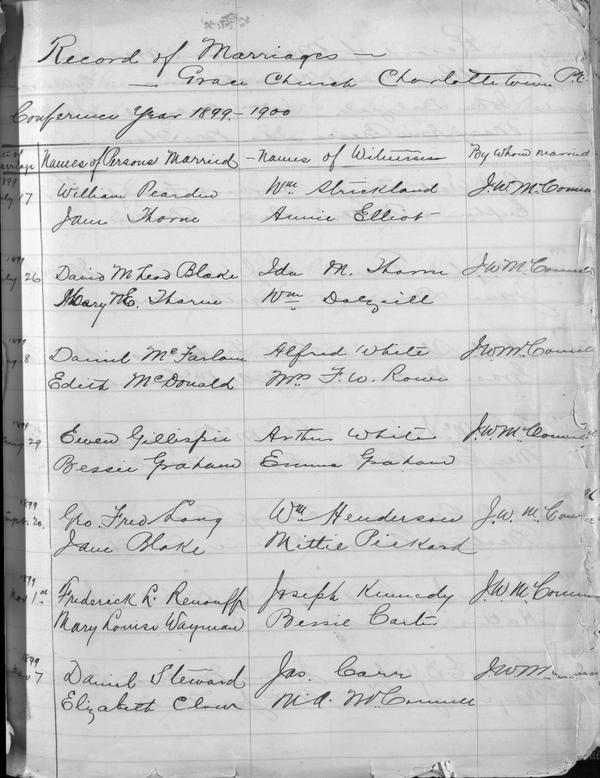 Record of Marriages —
— Grace Church Charlottetown P.E.
Conference Year 1899–1900
Names of Persons Married – Names of Witnesses By whom married
1899
July 17 William Pearden Wm Strickland J.W. McConnell
Jane Thorne Annie Elliot
1899
July 26 David McLeod Blake Ida M. Thorne J.W. McConnell
Mary E. Thorne Wm Dalziell
1899
Aug 8 Daniel McFarlane Alfred White J.W. McConnell
Edith McDonald Mrs F.W. Rowe
1899
Aug 29 Ewen Gillispie Arthur White J.W. McConnell
Bessie Graham Emma Graham
1899
Sept. 20 Geo. Fred Long Wm Henderson J.W. McConnell
Jane Blake Mittie Pickard
1899
Nov 1st Frederick L. Renouff Joseph Kennedy J.W. McConnell
Mary Louise Wayman Bessie Carter
1899
Nov 7 Daniel Steward Jas. Carr J.W. McConnell
Elizabeth Clow M.A. McConnell